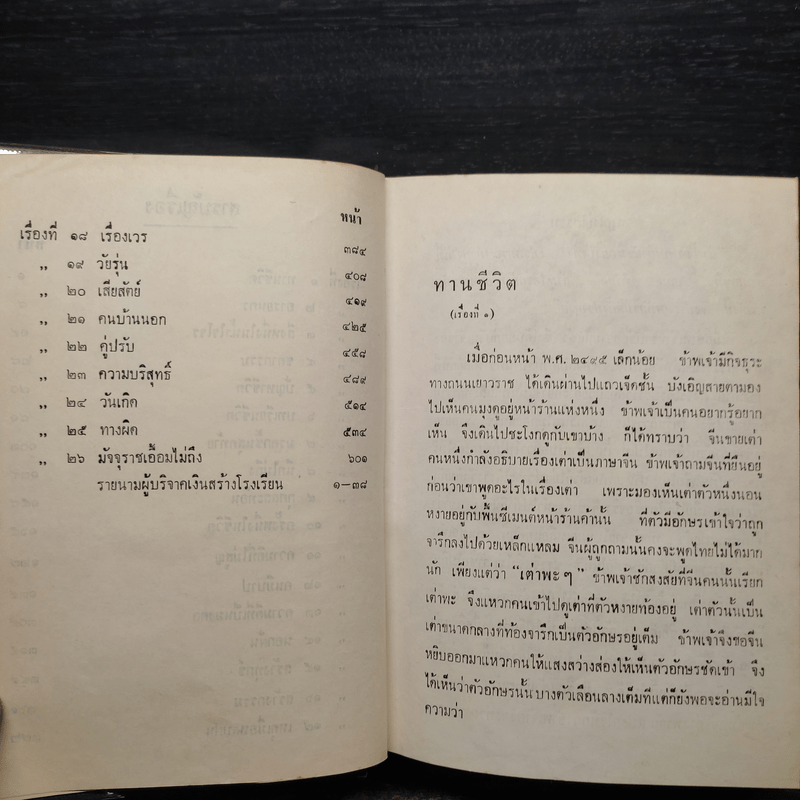 หน้า
เรื่องที่ ๑๘ เรื่องเวร ๓๘๔
„ ๑๙ วัยรุ่น ๔๐๘
„ ๒๐ เสียสัตย์ ๔๑๙
„ ๒๑ คนบ้านนอก ๔๒๕
„ ๒๒ คู่ปรับ ๔๕๘
„ ๒๓ ความบริสุทธิ์ ๔๘๙
„ ๒๔ วันเกิด ๕๑๔
„ ๒๕ ทางผิด ๕๓๔
„ ๒๖ มัจจุราชเอื้อมไม่ถึง ๖๐๑
รายนามผู้บริจาคเงินสร้างโรงเรียน ๑–๓๘
ทานชีวิต
(เรื่องที่ ๑)
เมื่อก่อนหน้า พ.ศ. ๒๔๙๕ เล็กน้อย ข้าพเจ้ามีกิจธุระ
ทางถนนเยาวราช ได้เดินผ่านไปแถวเจ็ดชั้น บังเอิญสายตามอง
ไปเห็นคนมุงดูอยู่หน้าร้านแห่งหนึ่ง ข้าพเจ้าเป็นคนอยากรู้อยาก
เห็น จึงเดินไปชะโงกดูกับเขาบ้าง ก็ได้ทราบว่า จีนขายเต่า
คนหนึ่งกำลังอธิบายเรื่องเต่าเป็นภาษาจีน ข้าพเจ้าถามจีนที่ยืนอยู่
ก่อนว่าเขาพูดอะไรในเรื่องเต่า เพราะมองเห็นเต่าตัวหนึ่งนอน
หงายอยู่กับพื้นซีเมนต์หน้าร้านค้านั้น ที่ตัวมีอักษรเข้าใจว่าถูก
จารึกลงไปด้วยเหล็กแหลม จีนผู้ถูกถามนั้นคงจะพูดไทยไม่ได้มาก
นัก เพียงแต่ว่า “เต่าพะๆ” ข้าพเจ้าชักสงสัยที่จีนคนนั้นเรียก
เต่าพะ จึงแหวกคนเข้าไปดูเต่าที่ตัวหงายท้องอยู่ เต่าตัวนั้นเป็น
เต่าขนาดกลางที่ท้องจารึกเป็นตัวอักษรอยู่เต็ม ข้าพเจ้าจึงขอจีน
หยิบออกมาแหวกคนให้แสงสว่างส่องให้เห็นตัวอักษรชัดเข้า จึง
ได้เห็นว่าตัวอักษรนั้น บางตัวเลือนลางเต็มทีแต่ก็ยังพอจะอ่านมีใจ
ความว่า